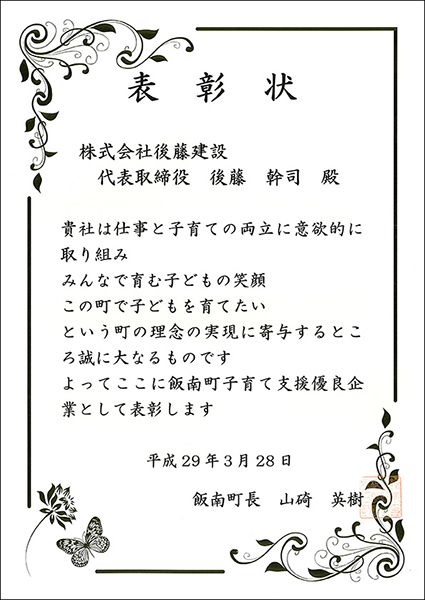 表彰状
株式会社後藤建設
代表取締役 後藤 幹司 殿
貴社は仕事と子育ての両立に意欲的に
取り組み
みんなで育む子どもの笑顔
この町で子どもを育てたい
という町の理念の実現に寄与するとこ
ろ誠に大なるものです
よってここに飯南町子育て支援優良企
業として表彰します
平成29年3月28日
飯南町長 山碕 英樹